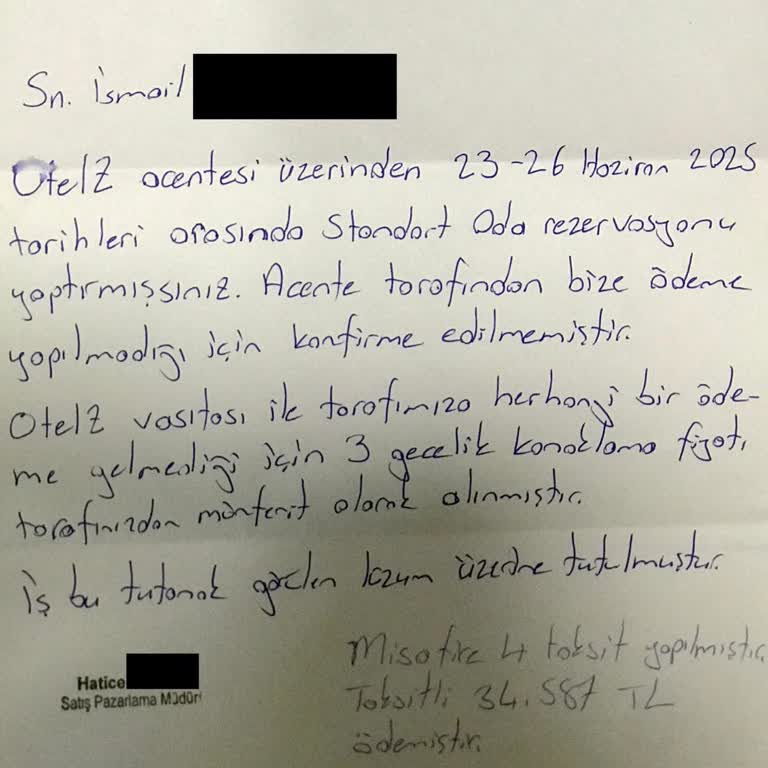 Sn. İsmail
OtelZ acentesi üzerinden 23-26 Haziran 2025
tarihleri arasında Standart Oda rezervasyonu
yaptırmışsınız. Acente tarafından bize ödeme
yapılmadığı için konfirme edilmemiştir.
OtelZ vasıtası ile tarafımıza herhangi bir öde-
me gelmediği için 3 gecelik konaklama fiyatı
tarafınızdan münferit olarak alınmıştır.
İş bu tutanak görülen lüzum üzerine tutulmuştur.
Misafire 4 taksit yapılmıştır.
Taksitli 34.587 TL
ödemiştir.
Hatice
Satış Pazarlama Müdürü